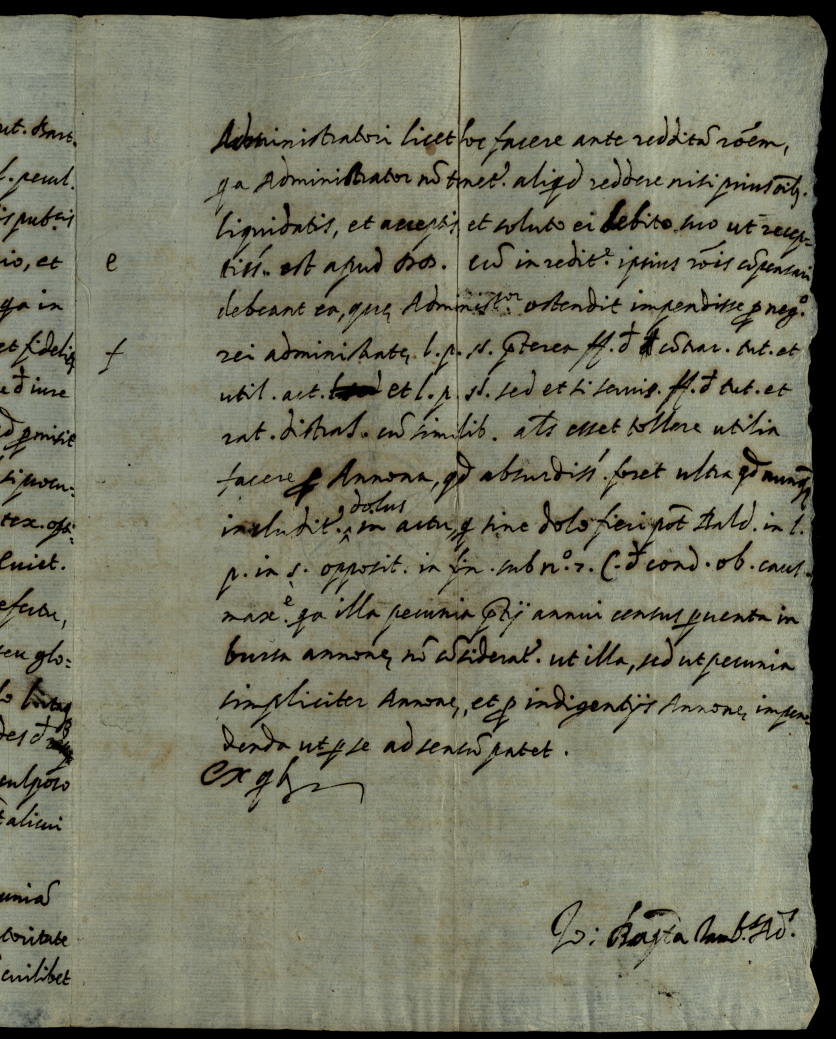 ut. Bart.
l. pecul.
is pub
io, et
qa in
et fideli
e đ iure
si procu:
tex. opti:
seu glo:
culposo
alicui
unia
toritate
cuilibet
e
Administratori licet hoc facere ante redditā rōēm,
qa Administrator nō tenet.ʳ aliqd reddere nisi prius oīb.
liquidatis, et acceptis, et soluto ei debito suo ut recep-
tiss. est apud DD. cū in reditᵉ ipsius rōis cōpensari
debeant ea, quę Adminisᵗᵒʳ ostendit impendisse ꝓ neg.º
rei administratę l. p. §. p̄terea ff. đ cōtrar. tut. et
util. act. et l. p. §. sed et si servus. ff. đ tut. et
rat. distrah. cū similib. al̄s esset tollere utilia
facere ꝓ Annona, qđ absurdiss. foret ultra qđ nunq̄
includitʳ dolus in actu, q sine dolo fieri pōt Bald. in l.
p. in s. opposit. in fin. sub nº. 2. C. đ cond. ob. caus.
maxᵉ. qa illa pecunia p̄tij annui census ꝑventa in
bursa annonę, nō cōsideratʳ. ut illa, sed ut pecunia
simpliciter Annonę, et ꝓ indigentijs Annonę, impen-
denda ut ꝑ se ad sensū patet.
Ex q
Jo: Bap̄ta